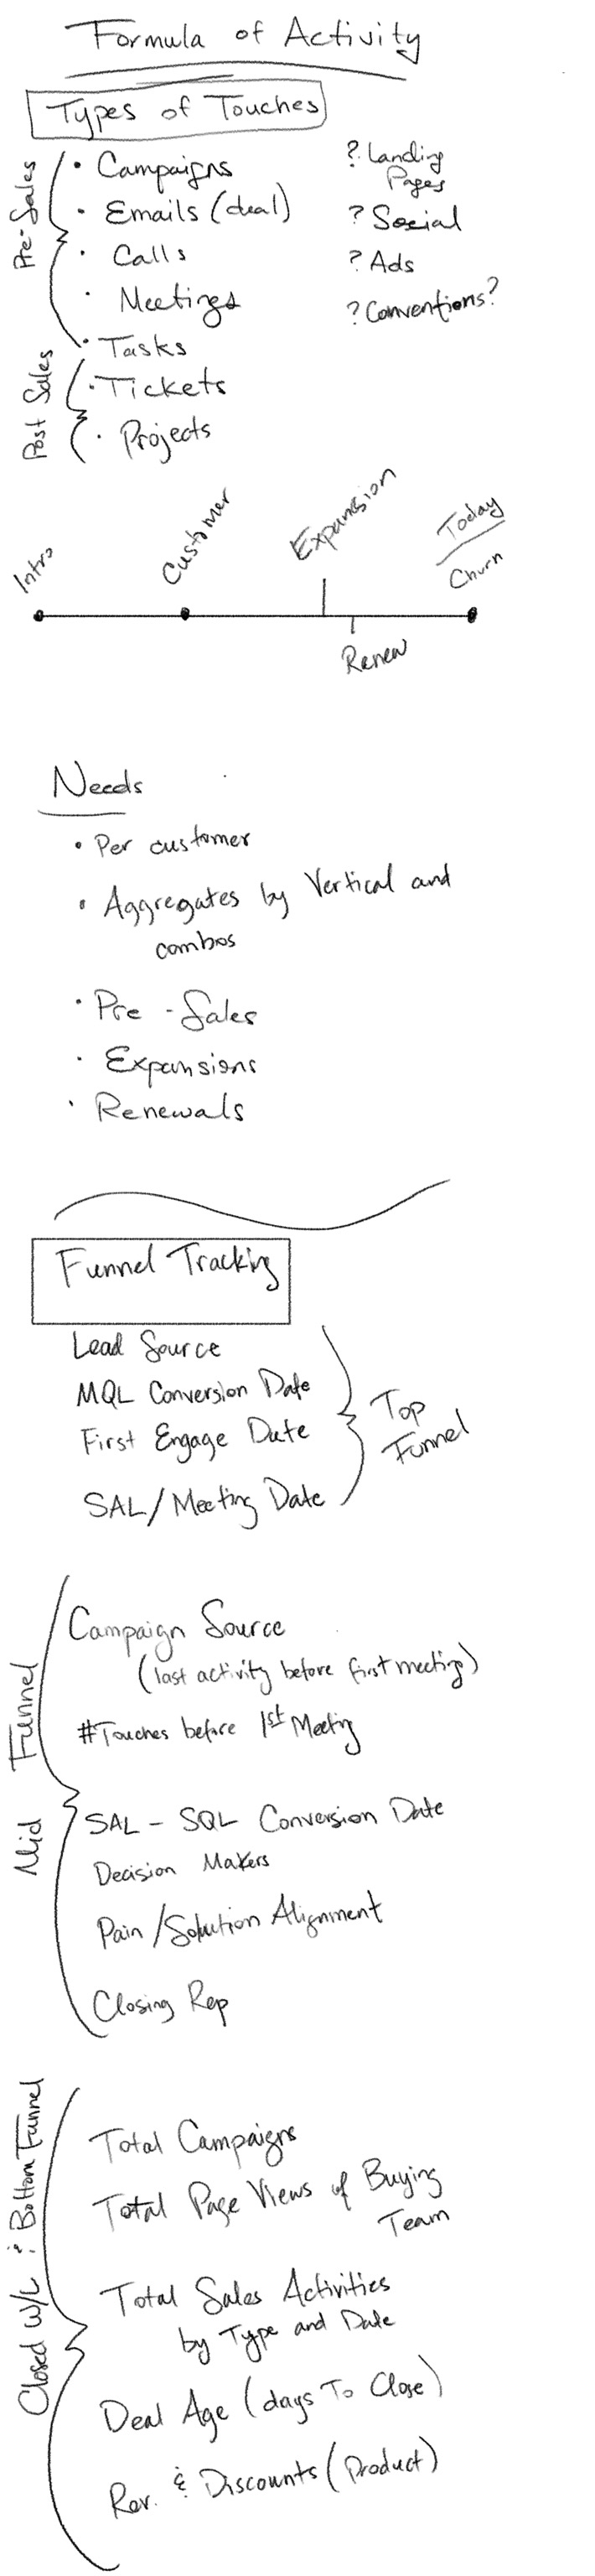 Formula of Activity
Types of Touches
Pre-Sales
• Campaigns
• Emails (deal)
• Calls
• Meetings
• Tasks
? Landing
Pages
? Social
? Ads
? Conventions?
Post Sales
• Tickets
• Projects
Intro
Customer
Expansion
Today
Churn
Renew
Needs
• Per customer
• Aggregates by Vertical and
combos
• Pre-Sales
• Expansions
• Renewals
Funnel Tracking
Lead Source
MQL Conversion Date
First Engage Date
SAL/Meeting Date
Top
Funnel
Mid Funnel
Campaign Source
(last activity before first meeting)
#Touches before 1st Meeting
SAL - SQL Conversion Date
Decision Makers
Pain/Solution Alignment
Closing Rep
Closed W/L & Bottom Funnel
Total Campaigns
Total Page Views of Buying
Team
Total Sales Activities
by Type and Date
Deal Age (days To Close)
Rev. & Discounts (Product)